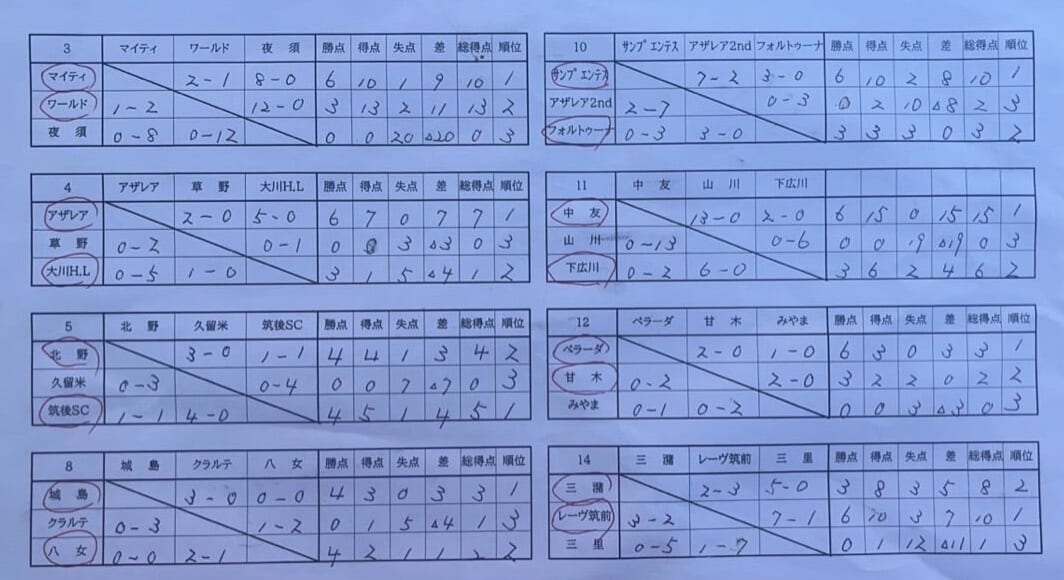 3 マイティ ワールド 夜須 勝点 得点 失点 差 総得点 順位
マイティ 2-1 8-0 6 10 1 9 10 1
ワールド 1-2 12-0 3 13 2 11 13 2
夜須 0-8 0-12 0 0 20 △20 0 3
4 アザレア 草野 大川H.L 勝点 得点 失点 差 総得点 順位
アザレア 2-0 5-0 6 7 0 7 7 1
草野 0-2 0-1 0 0 3 △3 0 3
大川H.L 0-5 1-0 3 1 5 △4 1 2
5 北野 久留米 筑後SC 勝点 得点 失点 差 総得点 順位
北野 3-0 1-1 4 4 1 3 4 2
久留米 0-3 0-4 0 0 7 △7 0 3
筑後SC 1-1 4-0 4 5 1 4 5 1
8 城島 クラルテ 八女 勝点 得点 失点 差 総得点 順位
城島 3-0 0-0 4 3 0 3 3 1
クラルテ 0-3 1-2 0 1 5 △4 1 3
八女 0-0 2-1 4 2 1 1 2 2
10 サンプエンテス アザレア2nd フォルトゥーナ 勝点 得点 失点 差 総得点 順位
サンプエンテス 7-2 3-0 6 10 2 8 10 1
アザレア2nd 2-7 0-3 0 2 10 △8 2 3
フォルトゥーナ 0-3 3-0 3 3 3 0 3 2
11 中友 山川 下広川
中友 13-0 2-0 6 15 0 15 15 1
山川 0-13 0-6 0 0 19 △19 0 3
下広川 0-2 6-0 3 6 2 4 6 2
12 ペラーダ 甘木 みやま 勝点 得点 失点 差 総得点 順位
ペラーダ 2-0 1-0 6 3 0 3 3 1
甘木 0-2 2-0 3 2 2 0 2 2
みやま 0-1 0-2 0 0 3 △3 0 3
14 三潴 レーヴ筑前 三里 勝点 得点 失点 差 総得点 順位
三潴 2-3 5-0 3 8 3 5 8 2
レーヴ筑前 3-2 7-1 6 10 3 7 10 1
三里 0-5 1-7 0 1 12 △11 1 3